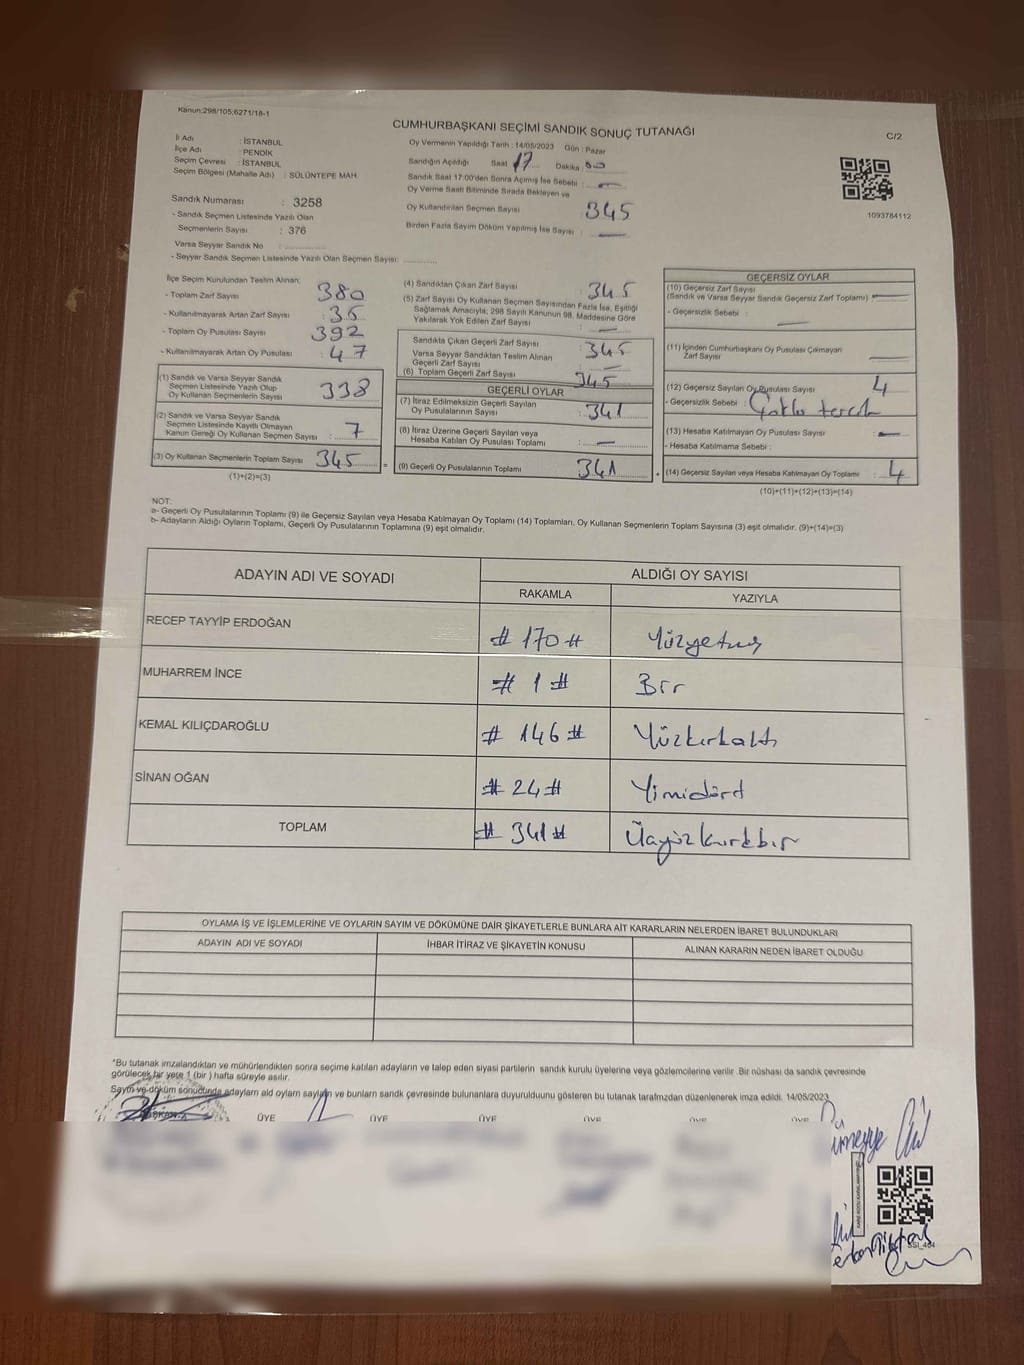 Kanun:298/105;6271/18-1
CUMHURBAŞKANI SEÇİMİ SANDIK SONUÇ TUTANAĞI
C/2
İl Adı : İSTANBUL
İlçe Adı : PENDİK
Seçim Çevresi : İSTANBUL
Seçim Bölgesi (Mahalle Adı) : SÜLÜNTEPE MAH.
Oy Vermenin Yapıldığı Tarih : 14/05/2023 Gün : Pazar
Sandığın Açıldığı Saat 17 Dakika : 00
Sandık Saat 17:00'den Sonra Açılmış İse Sebebi : —
Oy Verme Saati Bitiminde Sırada Bekleyen ve
Oy Kullandırılan Seçmen Sayısı : 345
Birden Fazla Sayım Döküm Yapılmış İse Sayısı : —
1093784112
Sandık Numarası : 3258
- Sandık Seçmen Listesinde Yazılı Olan
Seçmenlerin Sayısı : 376
Varsa Seyyar Sandık No :
- Seyyar Sandık Seçmen Listesinde Yazılı Olan Seçmen Sayısı:
İlçe Seçim Kurulundan Teslim Alınan:
- Toplam Zarf Sayısı : 380
- Kullanılmayarak Artan Zarf Sayısı : 35
- Toplam Oy Pusulası Sayısı : 392
- Kullanılmayarak Artan Oy Pusulası : 47
(1) Sandık ve Varsa Seyyar Sandık
Seçmen Listesinde Yazılı Olup
Oy Kullanan Seçmenlerin Sayısı : 338
(2) Sandık ve Varsa Seyyar Sandık
Seçmen Listesinde Kayıtlı Olmayan
Kanun Gereği Oy Kullanan Seçmen Sayısı : 7
(3) Oy Kullanan Seçmenlerin Toplam Sayısı : 345
(1)+(2)=(3)
(4) Sandıktan Çıkan Zarf Sayısı : 345
(5) Zarf Sayısı Oy Kullanan Seçmen Sayısından Fazla İse, Eşitliği
Sağlamak Amacıyla; 298 Sayılı Kanunun 98. Maddesine Göre
Yakılarak Yok Edilen Zarf Sayısı : —
Sandıkta Çıkan Geçerli Zarf Sayısı : 345
Varsa Seyyar Sandıktan Teslim Alınan
Geçerli Zarf Sayısı : —
(6) Toplam Geçerli Zarf Sayısı : 345
GEÇERLİ OYLAR
(7) İtiraz Edilmeksizin Geçerli Sayılan
Oy Pusulalarının Sayısı : 341
(8) İtiraz Üzerine Geçerli Sayılan veya
Hesaba Katılan Oy Pusulası Toplamı : —
(9) Geçerli Oy Pusulalarının Toplamı : 341
GEÇERSİZ OYLAR
(10) Geçersiz Zarf Sayısı
(Sandık ve Varsa Seyyar Sandık Geçersiz Zarf Toplamı) : —
- Geçersizlik Sebebi : —
(11) İçinden Cumhurbaşkanı Oy Pusulası Çıkmayan
Zarf Sayısı : —
(12) Geçersiz Sayılan Oy Pusulası Sayısı : 4
- Geçersizlik Sebebi :
(13) Hesaba Katılmayan Oy Pusulası Sayısı : —
- Hesaba Katılmama Sebebi :
(14) Geçersiz Sayılan veya Hesaba Katılmayan Oy Toplamı : 4
(10)+(11)+(12)+(13)=(14)
NOT:
a- Geçerli Oy Pusulalarının Toplamı (9) ile Geçersiz Sayılan veya Hesaba Katılmayan Oy Toplamı (14) Toplamları, Oy Kullanan Seçmenlerin Toplam Sayısına (3) eşit olmalıdır. (9)+(14)=(3)
b- Adayların Aldığı Oyların Toplamı, Geçerli Oy Pusulalarının Toplamına (9) eşit olmalıdır.
ADAYIN ADI VE SOYADI ALDIĞI OY SAYISI
RAKAMLA YAZIYLA
RECEP TAYYİP ERDOĞAN # 170 # Yüzyetmiş
MUHARREM İNCE # 1 # Bir
KEMAL KILIÇDAROĞLU # 146 # Yüzkırkaltı
SİNAN OĞAN # 24 # Yirmidört
TOPLAM # 341 # Üçyüzkırkbir
OYLAMA İŞ VE İŞLEMLERİNE VE OYLARIN SAYIM VE DÖKÜMÜNE DAİR ŞİKAYETLERLE BUNLARA AİT KARARLARIN NELERDEN İBARET BULUNDUKLARI
ADAYIN ADI VE SOYADI İHBAR İTİRAZ VE ŞİKAYETİN KONUSU ALINAN KARARIN NEDEN İBARET OLDUĞU
*Bu tutanak imzalandıktan ve mühürlendikten sonra seçime katılan adayların ve talep eden siyasi partilerin sandık kurulu üyelerine veya gözlemcilerine verilir. Bir nüshası da sandık çevresinde
görülecek bir yere 1 (bir) hafta süreyle asılır.
Sayım ve döküm sonucunda adayların aldığı oyların sayıları ve bunların sandık çevresinde bulunanlara duyurulduğunu gösteren bu tutanak tarafımızdan düzenlenerek imza edildi. 14/05/2023
BAŞKAN ÜYE ÜYE ÜYE ÜYE ÜYE ÜYE